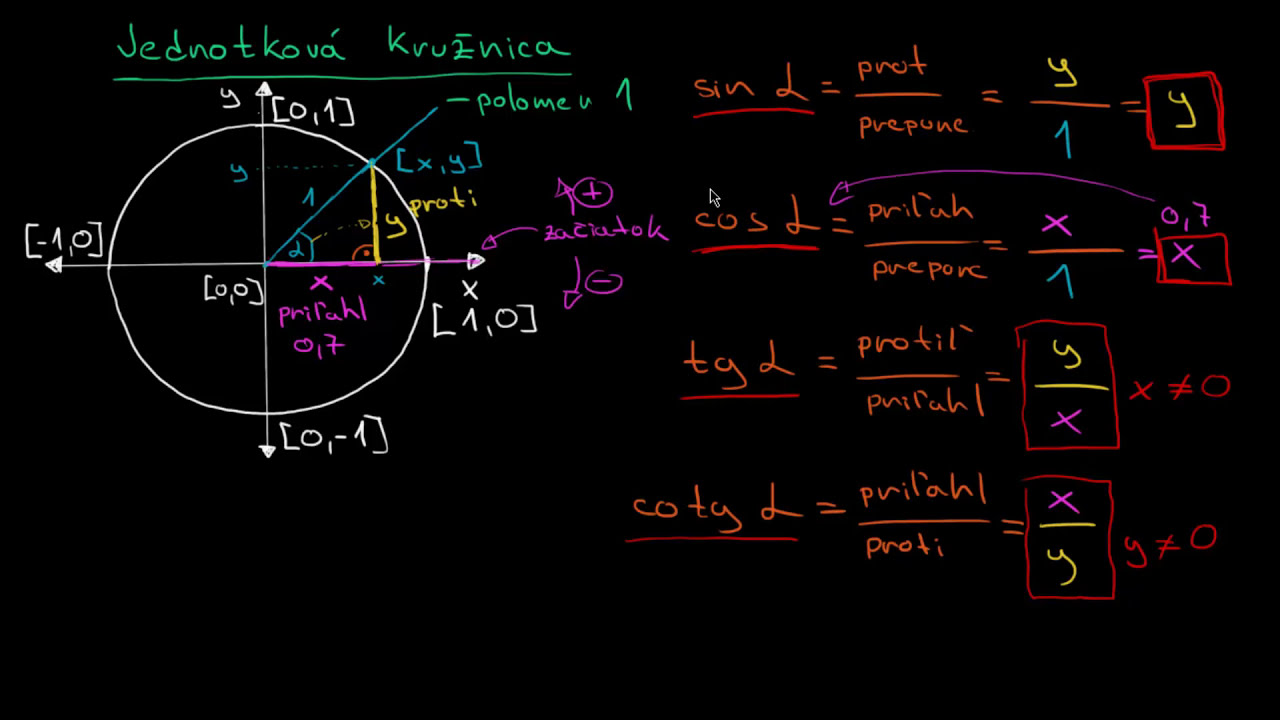 Jednotková kružnica
– polomer 1
y
[0,1]
y
[x,y]
1
y
proti
α
[-1,0]
[0,0]
x
x
x
priľahl
0,7
[1,0]
[0,-1]
+
začiatok
–
sin α = prot / prepone = y / 1 = y
cos α = priľah / prepone = x / 1 = x
0,7
tg α = protiľ / priľahl = y / x x ≠ 0
cotg α = priľahl / proti = x / y y ≠ 0